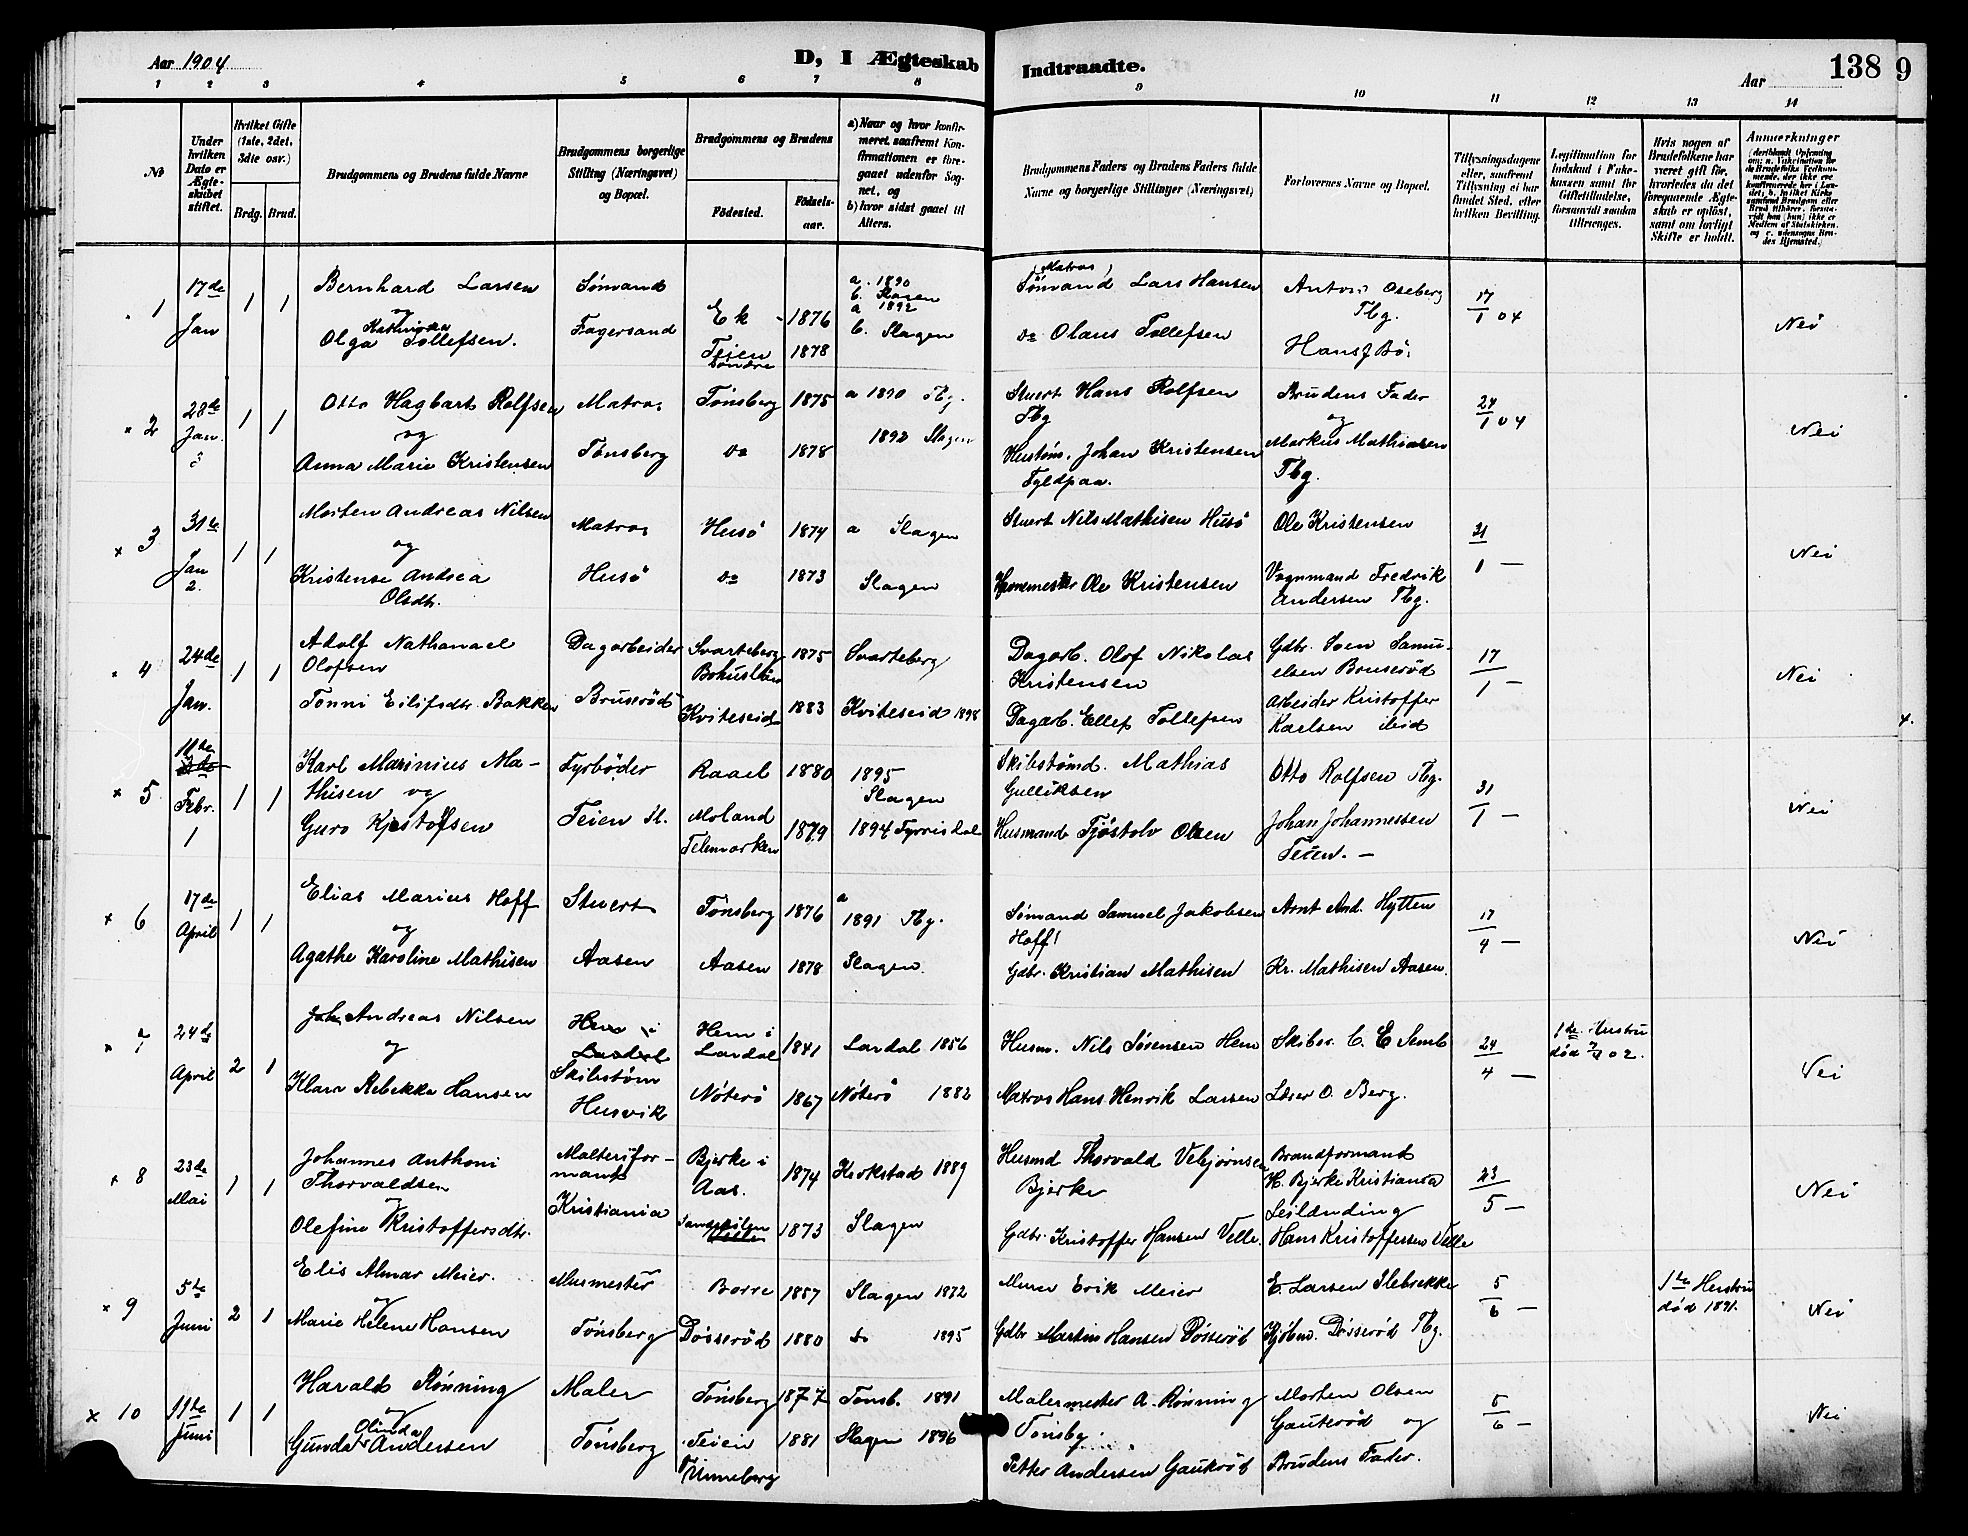 Aar 1904
D, I Ægteskab Indtraadte.
Aar
138
9
1 2 3 4 5 6 7 8 9 10 11 12 13 14
No
Under hvilken Dato er Ægteskabet stiftet.
Hvilket Gifte (1ste, 2det, 3die osv.)
Brdg. Brud.
Brudgommens og Brudens fulde Navne
Brudgommens borgerlige Stilling (Næringsvei) og Bopæl.
Brudgommens og Brudens
Födested.
Födselsaar.
a) Naar og hvor konfirmeret, saafremt Konfirmationen er foregaaet udenfor Sognet, og
b) hvor sidst gaaet til Alters.
Brudgommens Faders og Brudens Faders fulde Navne og borgerlige Stillinger (Næringsvei)
Forlovernes Navne og Bopæl.
Tillysningsdagene eller, saafremt Tillysning ei har fundet Sted, efter hvilken Bevilling.
Legitimation for Indskud i Enkekassen samt for Giftetilladelse, forsaavidt saadan tiltrænges.
Hvis nogen af Brudefolkene har været gift før, hvorledes da det foregaaende Ægteskab er opløst, samt om lovligt Skifte er holdt.
Anmerkninger
1 17de Jan 1 1
Bernhard Larsen og Olga Kathinka Tollefsen.
Sømand Fagersand
Ek 1876
Teien søndre 1878
a. 1890
b. Slagen
a 1892
b. Slagen
Sømand (Matros) Lars Hansen
do Olaus Tollefsen
Anton Oseberg Tbg.
Hans J Bø.
17/1 04
Nei
2 28de Jan. 3 1 1
Otto Hagbart Rolfsen og
Anna Marie Kristensen
Matros Tønsberg
Tønsberg 1875
do 1878
a 1890 Tbg.
1892 Slagen
Stuert Hans Rolfsen Tbg
Hustøm. Johan Kristensen Fyldpaa.
Brudens Fader og
Markus Mathiasen Tbg.
24/1 04
Nei
3 31te Jan 2. 1 1
Morten Andreas Nilsen og
Kristense Andrea Olsdtr.
Matros Husö
Husö 1874
do 1873
a Slagen
Slagen
Stuert Nils Mathisen Husö
Havnemester Ole Kristensen
Ole Kristensen
Vognmand Fredrik Andersen Tbg.
31/1 —
Nei
4 24de Jan. 1 1
Adolf Nathanael Olofsen
Tonni Eilifsdtr. Bakken
Dagarbeider Bruserød
Svarteberg Bohuslän 1875
Kviteseid 1883
Svarteberg
Kviteseid 1898
Dagarb. Olof Nikolas Kristensen
Dagarb. Ellef Tollefsen
Gdbr. Sven Samuelsen Bruserød
Arbeider Kristoffer Karlsen ibid
17/1 —
Nei
5 Febr. 1 1 1
Karl Marinius Mathisen og
Guro Kjestofsen
Fyrbøder Teien Sl.
Raael 1880
Moland Telemarken 1879
1895 Slagen
1894 Fyrrisdal
Skibstømd. Mathias Gulliksen
Husmand Tjöstolv Olsen
Otto Rolfsen Tbg.
Johan Johannessen Teien. —
31/1 —
Nei
6 17de April 1 1
Elias Marius Hoff og
Agathe Karoline Mathisen
Stuert Aasen
Tønsberg 1876
Aasen 1878
a 1891 Tbg.
Slagen.
Sømand Samuel Jakobsen Hoff!
Gdbr. Kristian Mathisen
Arnt And. Hytten
Kr. Mathisen Aasen.
17/4 —
Nei
7 24de April 2 1
Joh. Andreas Nilsen og
Klara Rebekka Hansen
Hem i Lardal Skibstøm Husvik
Hem i Lardal 1841
Nøterö 1867
Lardal 1856
Nøterö 1882
Husm. Nils Sørensen Hem
Matros Hans Henrik Larsen
Skibsr. C. E Semb
Lærer O. Berg.
24/4 —
1de Hustru død
Nei
8 23de Mai 1 1
Johannes Anthoni Thorvaldsen
Olefine Kristoffersdtr.
Malteriformand Kristiania
Bjerke i Aas. 1874
1873
Kirkstad 1889
Slagen
Husmd Thorvald Vebjørnsen Bjerke
Gdbr. Kristoffer Hansen Velle.
Brandformand H. Bjerke Kristiania
Leilænding Hans Kristoffersen Velle
23/5 —
Nei
9 5te Juni 2 1
Elis Almar Meier. og
Marie Helene Hansen
Murmester Tønsberg
Borre 1857
Døsserød 1880
Slagen 1872
do 1895
Murer Erik Meier
Gdbr Martin Hansen Døsserød
E. Larsen Slebrekke
Kjøbm. Døsserød Tbg.
5/6 —
1te Hustru død 1891.
Nei
10 11te Juni 1 1
Harald Rønning og
Gunda Olinda Andersen
Maler Tønsberg
Tønsberg 1877
Teien Unneberg 1881
Tønsb. 1891
Slagen 1896
Malermester A. Rønning Tønsbg.
Petter Andersen Gaukrød
Morten Olsen Gauterød og
Brudens Fader.
5/6 —
Nei